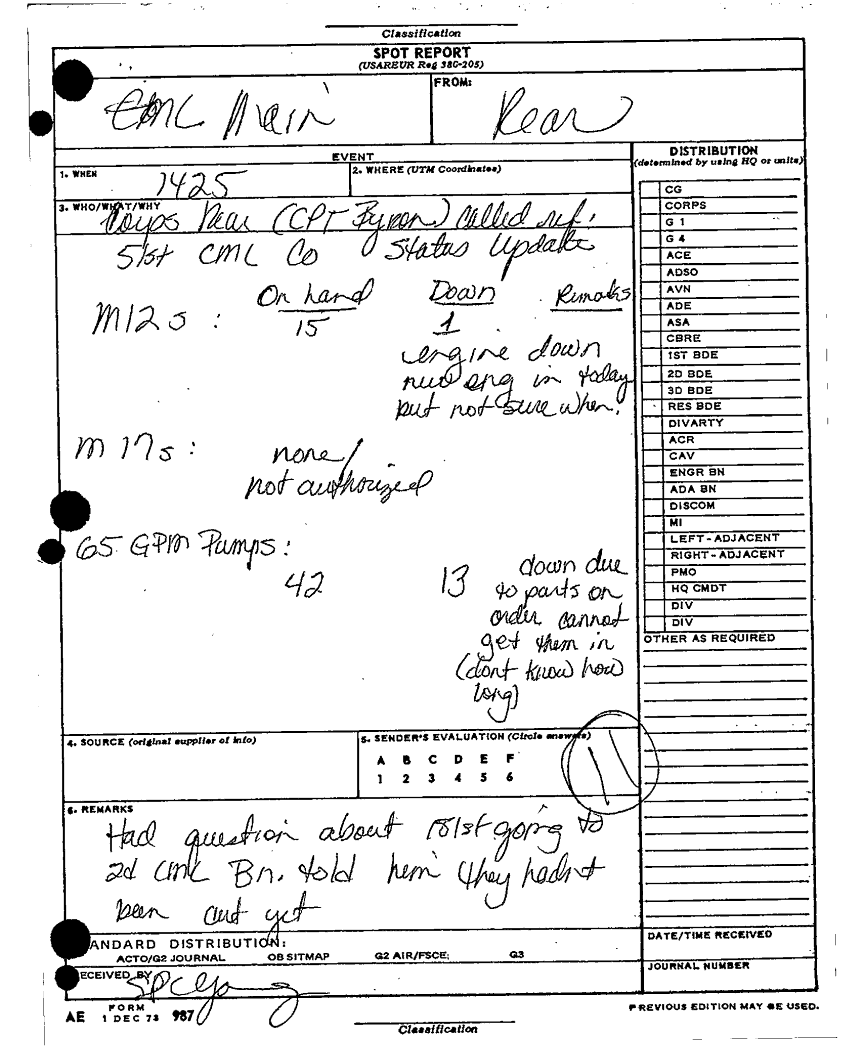 Classification
SPOT REPORT
(USAREUR Reg 380-205)
CML Main
FROM:
Rear
EVENT
1. WHEN
1425
2. WHERE (UTM Coordinates)
3. WHO/WHAT/WHY
Corps Rear (CPT Byron) called ref:
51st CML Co Status Update
On hand Down Remarks
M12s: 15 1
engine down
new eng in today
but not sure when.
M17s: none/
not authorized
65 GPM Pumps:
42 13 down due
to parts on
order cannot
get them in
(dont know how
long)
4. SOURCE (original supplier of info)
5. SENDER'S EVALUATION (Circle answers)
A B C D E F
1 2 3 4 5 6
11
6. REMARKS
Had question about 181st going to
2d CML Bn. told him they hadnt
been cut yet
STANDARD DISTRIBUTION:
ACTO/G2 JOURNAL OB SITMAP G2 AIR/FSCE; G3
RECEIVED BY
SPC
AE FORM 1 DEC 73 987
Classification
DISTRIBUTION
(determined by using HQ or units)
CG
CORPS
G 1
G 4
ACE
ADSO
AVN
ADE
ASA
CBRE
1ST BDE
2D BDE
3D BDE
RES BDE
DIVARTY
ACR
CAV
ENGR BN
ADA BN
DISCOM
MI
LEFT-ADJACENT
RIGHT-ADJACENT
PMO
HQ CMDT
DIV
DIV
OTHER AS REQUIRED
DATE/TIME RECEIVED
JOURNAL NUMBER
PREVIOUS EDITION MAY BE USED.